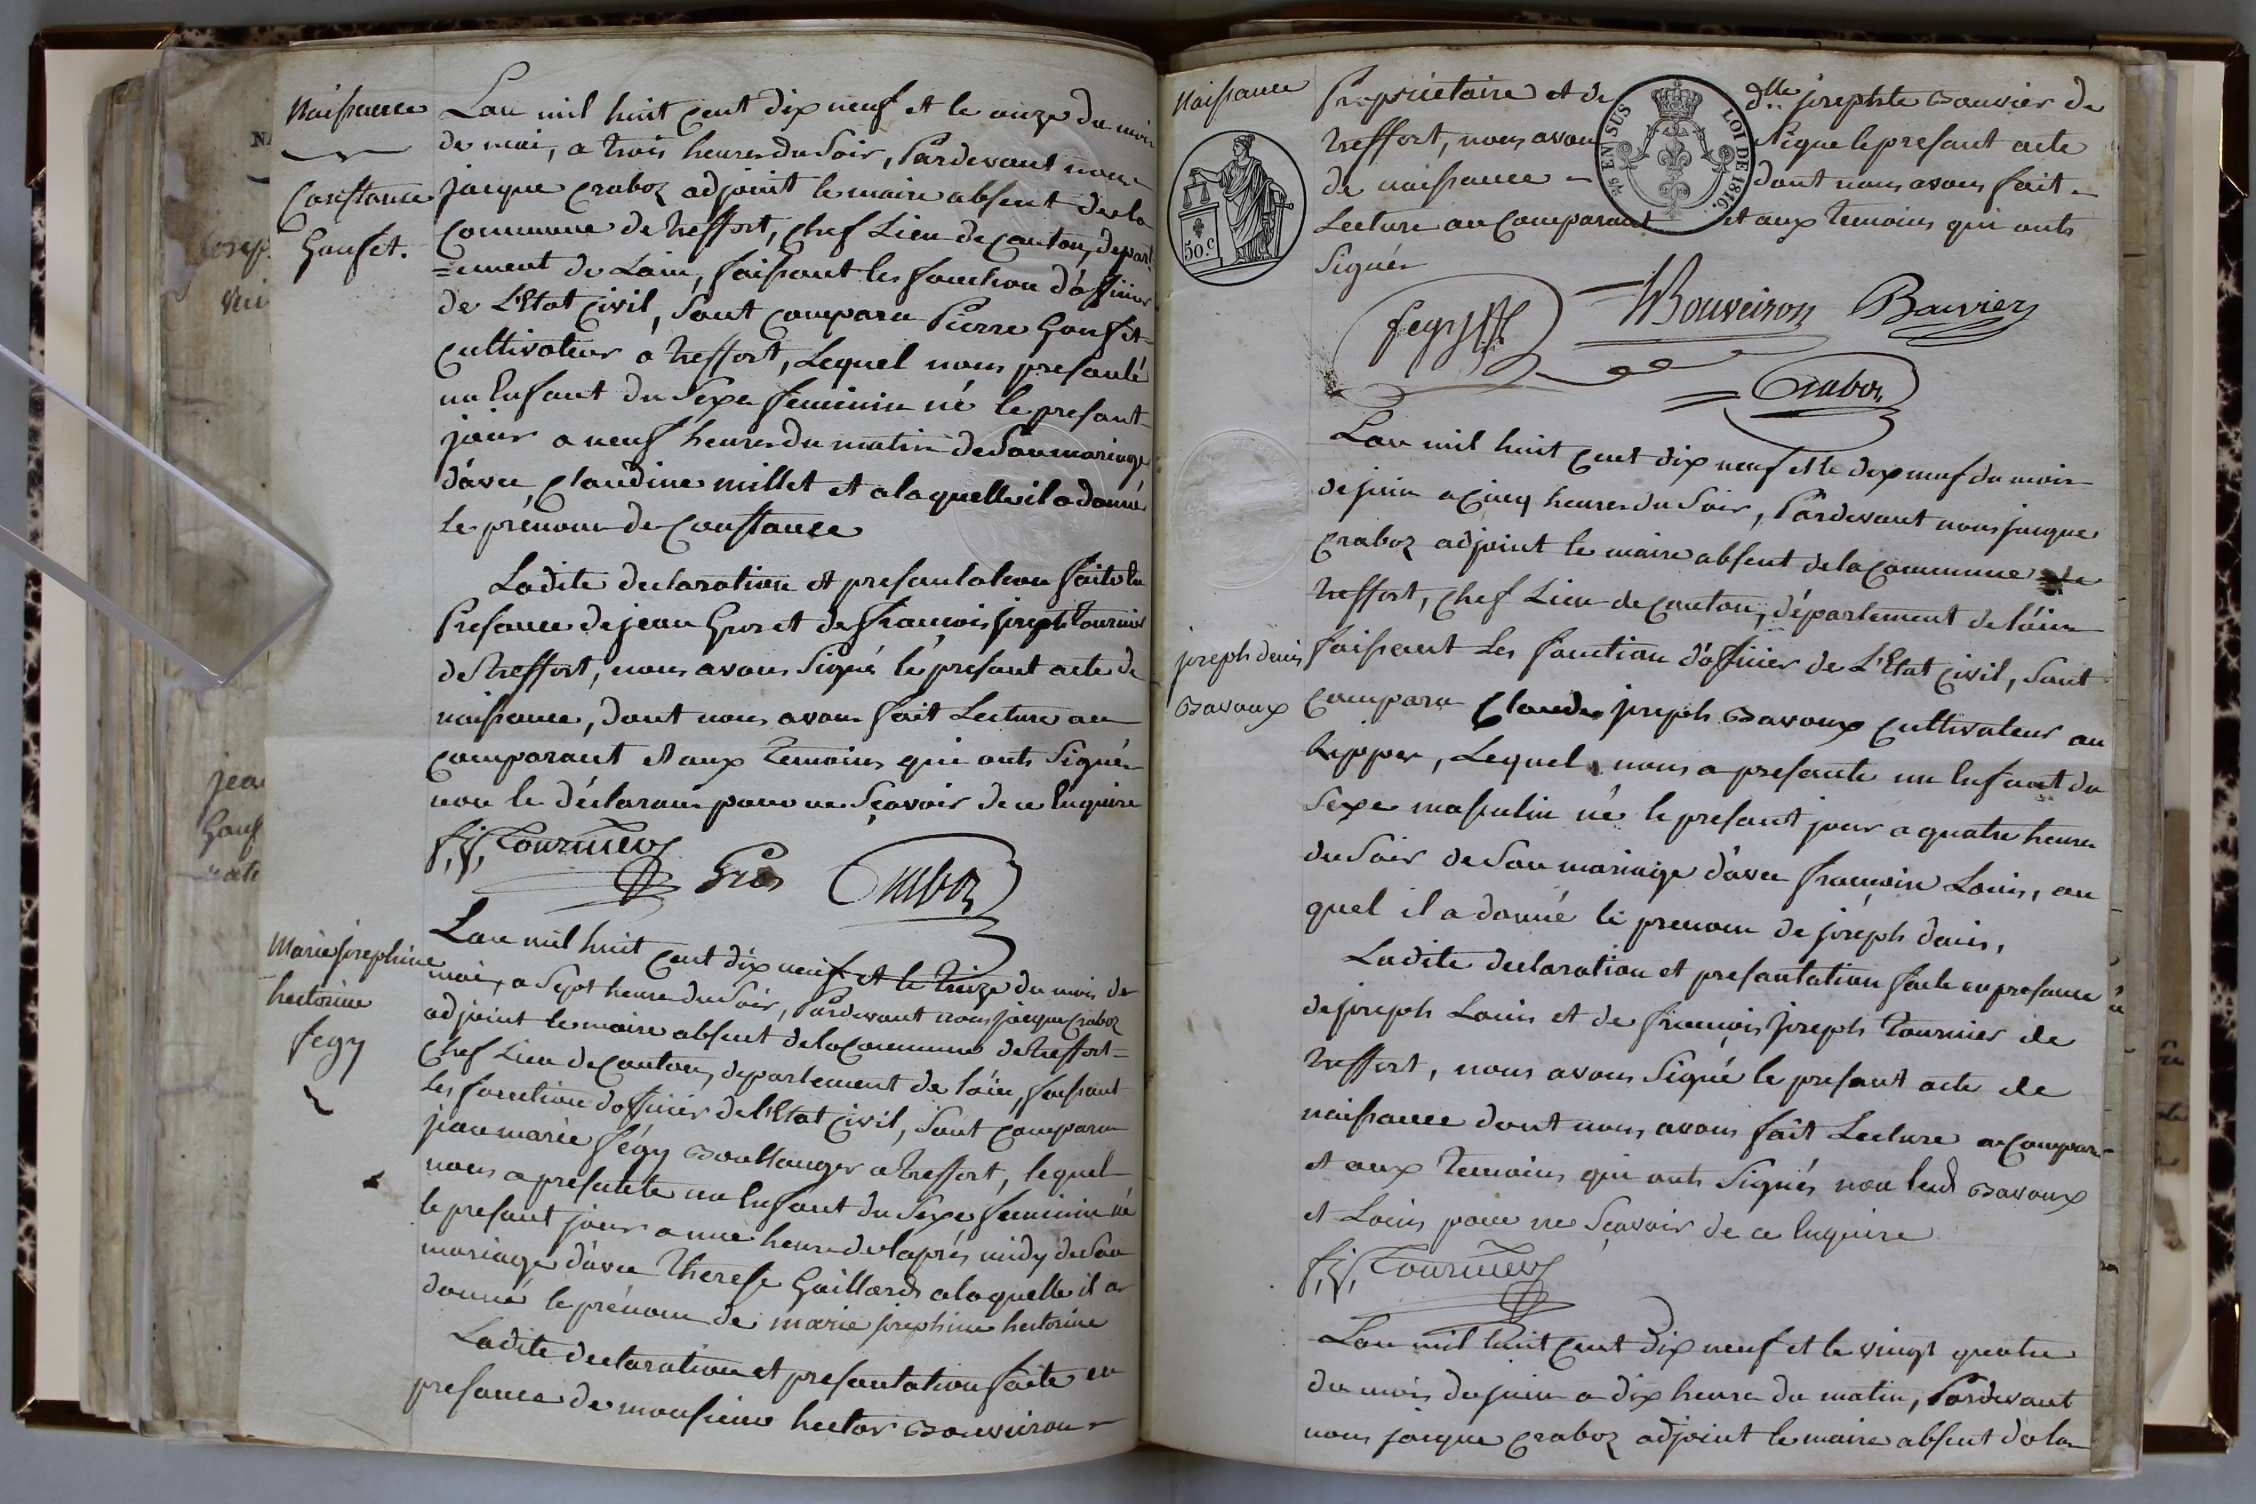 Naissance
Constance
Gonset.
L'an mil huit cent dix neuf et le onze du mois
de mai, a trois heures du Soir, Pardevant nous
jacque Craboz adjoint le maire absent de la
Commune de treffort, Chef Lieu de Canton, depart
=ement de Lain, faissant les fonction d'officier
de L'Etat Civil, Sont Comparu Pierre Gonset
Cultivateur a treffort, Lequel nous presanté
un Enfant du Sexe feminin né le presant
jour a neuf heures du matin de Son mariage
d'avec Claudine millet et a laquelle il a donné
le prénom de Constance
Ladite declaration et presantation faite en
Presance de jean Gros et de françois joseph tournier
de treffort, nous avons Signé le presant acte de
naissance, dont nous avons fait Lecture au
comparant et aux temoins qui onts Signés
non le déclarant pour ne Sçavoir de ce Enquire
f, j, Tournier
Gros
Craboz
Marie josephine
hectorine
fegy
L'an mil huit cent dix neuf et le treize du mois de
mai, a Sept heures du Soir, Pardevant nous jacque Craboz
adjoint le maire absent de la Commune de treffort =
Chef Lieu de Canton, departement de láin, faissant
les fonction dofficier de l'Etat Civil, Sont Comparu
jean marie fégy Boullanger a treffort, lequel
nous a presantete un Enfant du Sexe feminin né
le presant jour a une heure de laprés midy de Son
mariage d'avec Therese Gaillard a laquelle il a
donné le prénom de marie josephine hectorine
Ladite declaration et presantation faite en
presance de monsieur hector Bouveiron
Naissance
50.c
EN SUS
LOI DE 1816.
Propriétaire et de dlle josephte Bouvier de
treffort, nous avons Signe le presant acte
de naissance dont nous avons fait
Lecture au Comparant et aux temoins qui onts
Signés
fegy
Bouveiron
Bouvier
Craboz
joseph denis
Bavoux
L'an mil huit cent dix neuf et le dix neuf du mois
de juin a Cinq heures du Soir, Pardevant nous jacque
Craboz adjoint le maire absent de la Commune de
treffort, Chef Lieu de Canton, département de láin
faissant Les fonction d'officier de L'Etat Civil, Sont
Comparu Claude joseph Bavoux Cultivateur au
, Lequel nous a presante un Enfant du
Sexe masculin né le presant jour a quatre heures
du Soir de Son mariage d'avec françoise Louis, au
quel il a donné le prenom de joseph denis,
Ladite declaration et presantation faite en presance
de joseph Louis et de françois joseph tournier de
treffort, nous avons Signé le presant acte de
naissance dont nous avons fait Lecture au Compar
et aux temoins qui onts Signés non led Bavoux
et Louis pour ne Sçavoir de ce Enquire
f, j, Tournier
L'an mil huit cent dix neuf et le vingt quatre
du mois de juin a dix heures du matin, Pardevant
nous jacque Craboz adjoint le maire absent de la